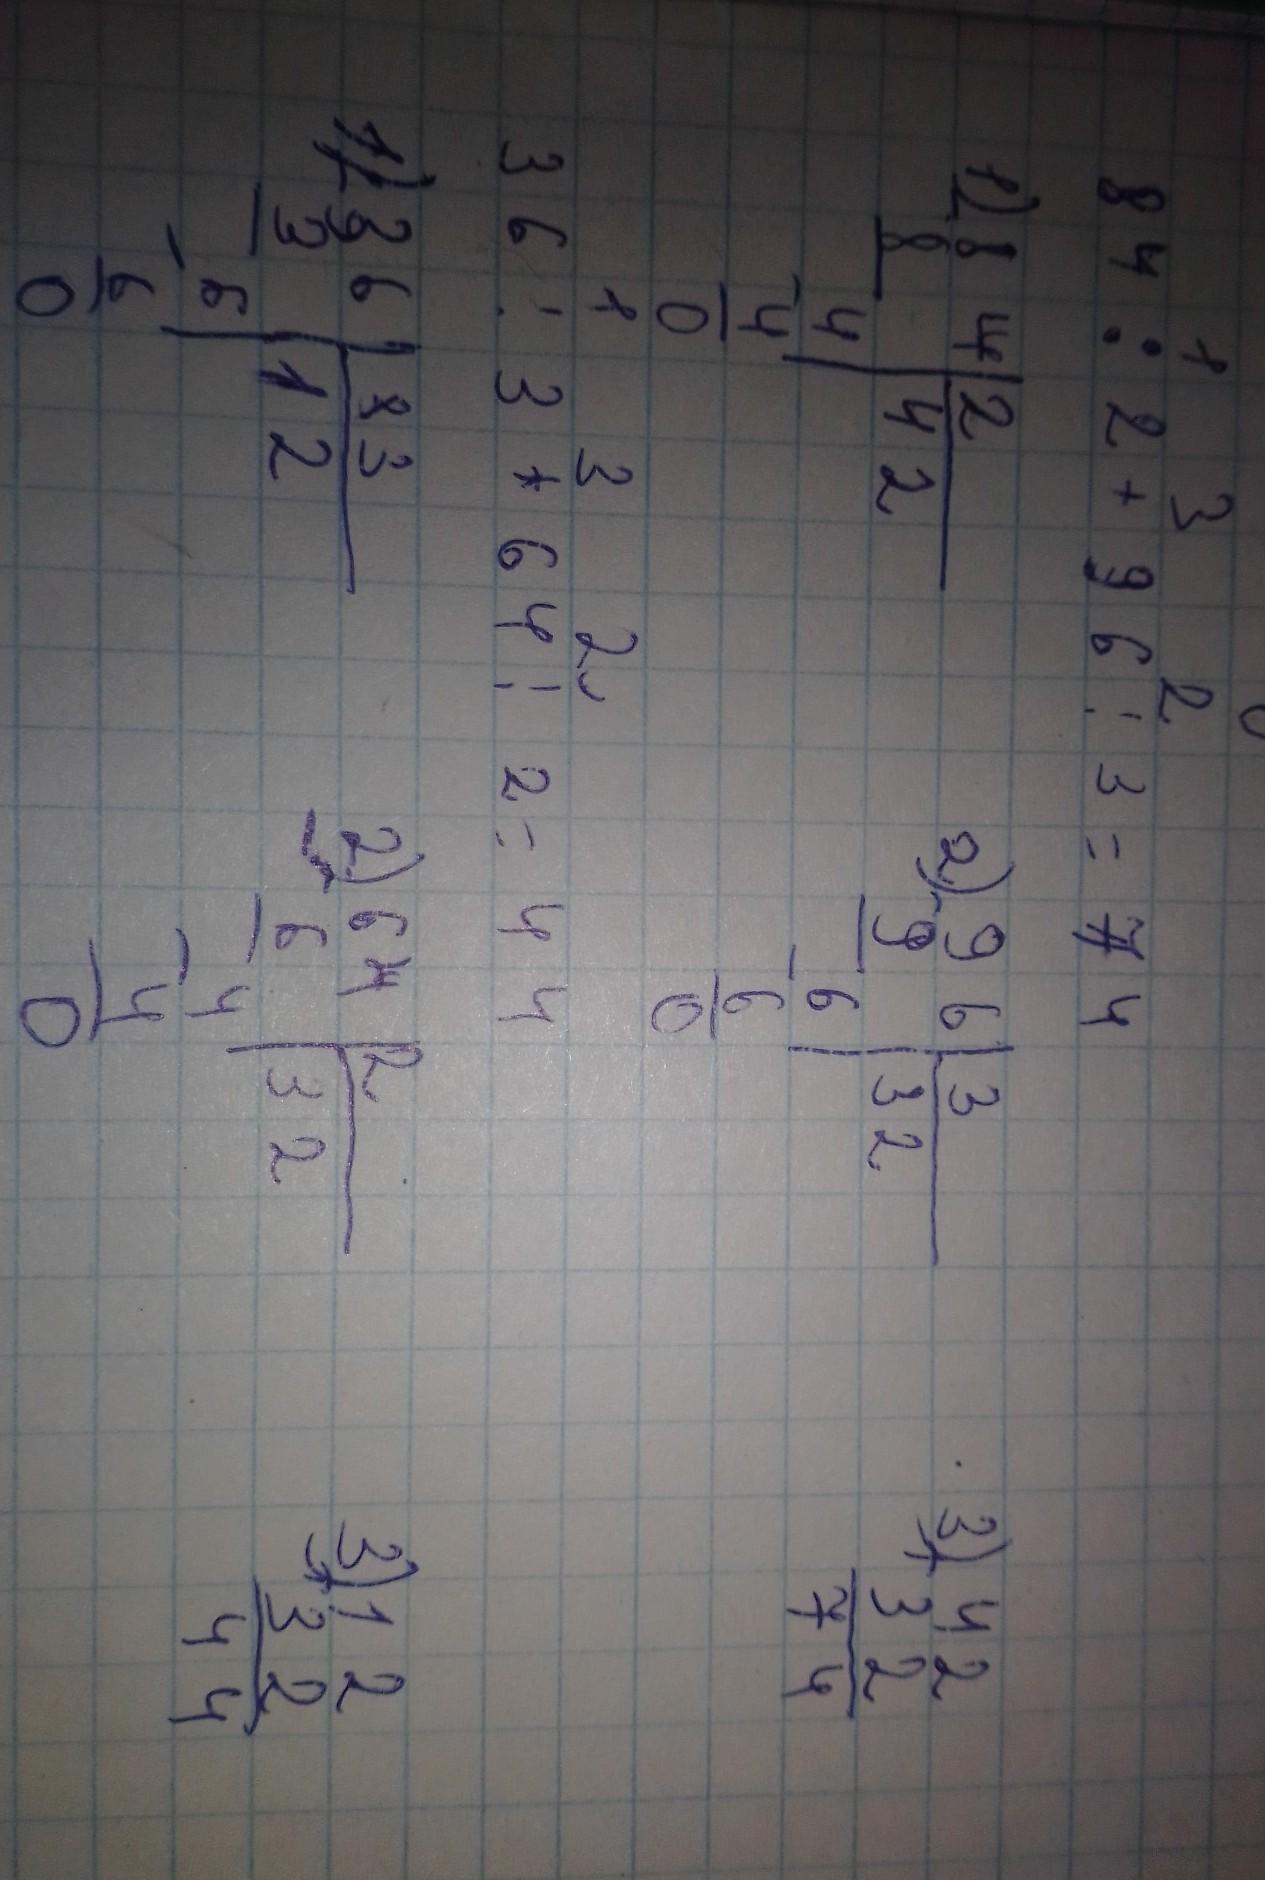 1 3 2
84:2+96:3=74
1) 84|2 2) 96|3 3) 42
8 |42 9 |32 + 32
-4 -6 74
4 6
0 0
1 3 2
36:3+64:2=44
1) 36|3 2) 64|2 3) 12
3 |12 6 |32 + 32
-6 -4 44
6 4
0 0